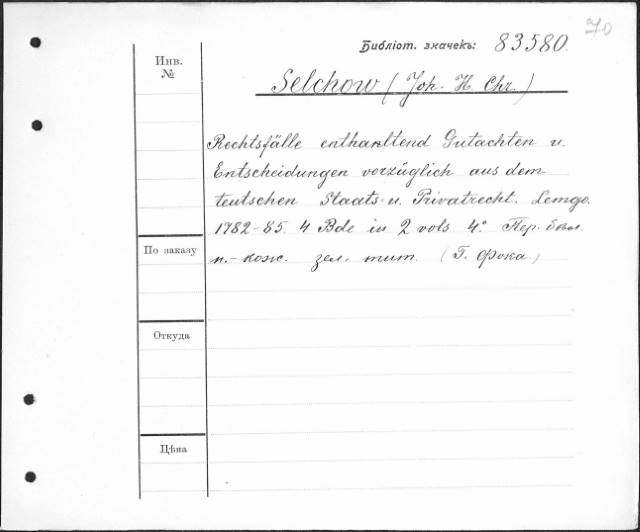 70
Библіот. значекъ: 83580.
Инв.
№
Selchow (Joh. H. Chr.)
Rechtsfälle enthanltend Gutachten u.
Entscheidungen vorzüglich aus dem
teutschen Staats- u. Privatrecht. Lemgo.
1782-85. 4 Bde in 2 vols 4º. Пер.
По заказу
п.-кож. зел. тит. (Г. Фока.)
Откуда
Цѣна